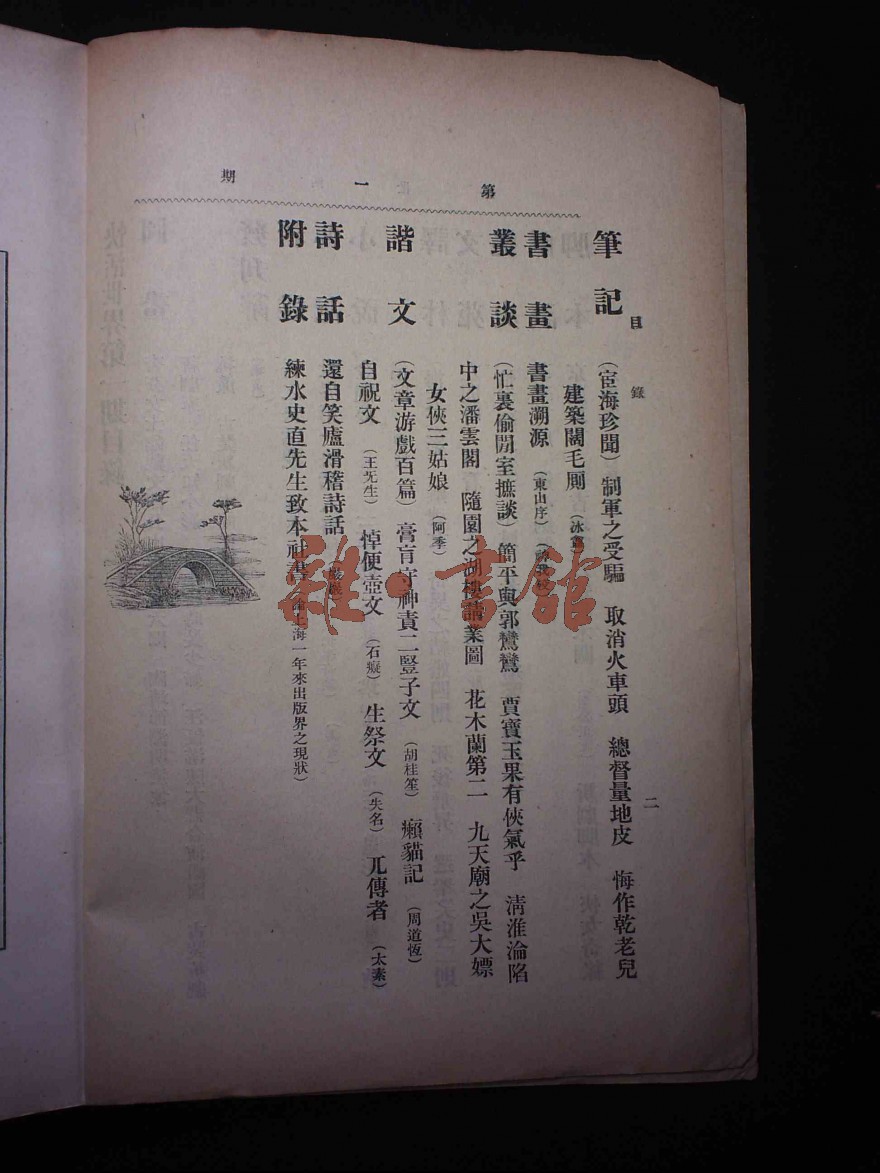 第一期
目錄 二
筆記 (宦海珍聞) 制軍之受騙 取消火車頭 總督量地皮 悔作乾老兒
建築闊毛厠 (冰盦)
書畫 書畫溯源 (東山序)
叢談 (忙裏偷閒室摭談) 簡平與郭鸞鸞 賈寶玉果有俠氣乎 淸淮淪陷
中之潘雲閣 隨園之湖樓請業圖 花木蘭第二 九天廟之吳大嫖
女俠三姑娘 (阿季)
諧文 (文章游戲百篇) 膏肓守神責二豎子文 (胡桂笙) 癩貓記 (周道恆)
自祝文 (王旡生) 悼便壺文 (石癡) 生祭文 (失名) 兀傳者 (太素)
詩話 還自笑廬滑稽詩話
附錄 練水史直先生致本社書 (論上海一年來出版界之現狀)
雜·書館